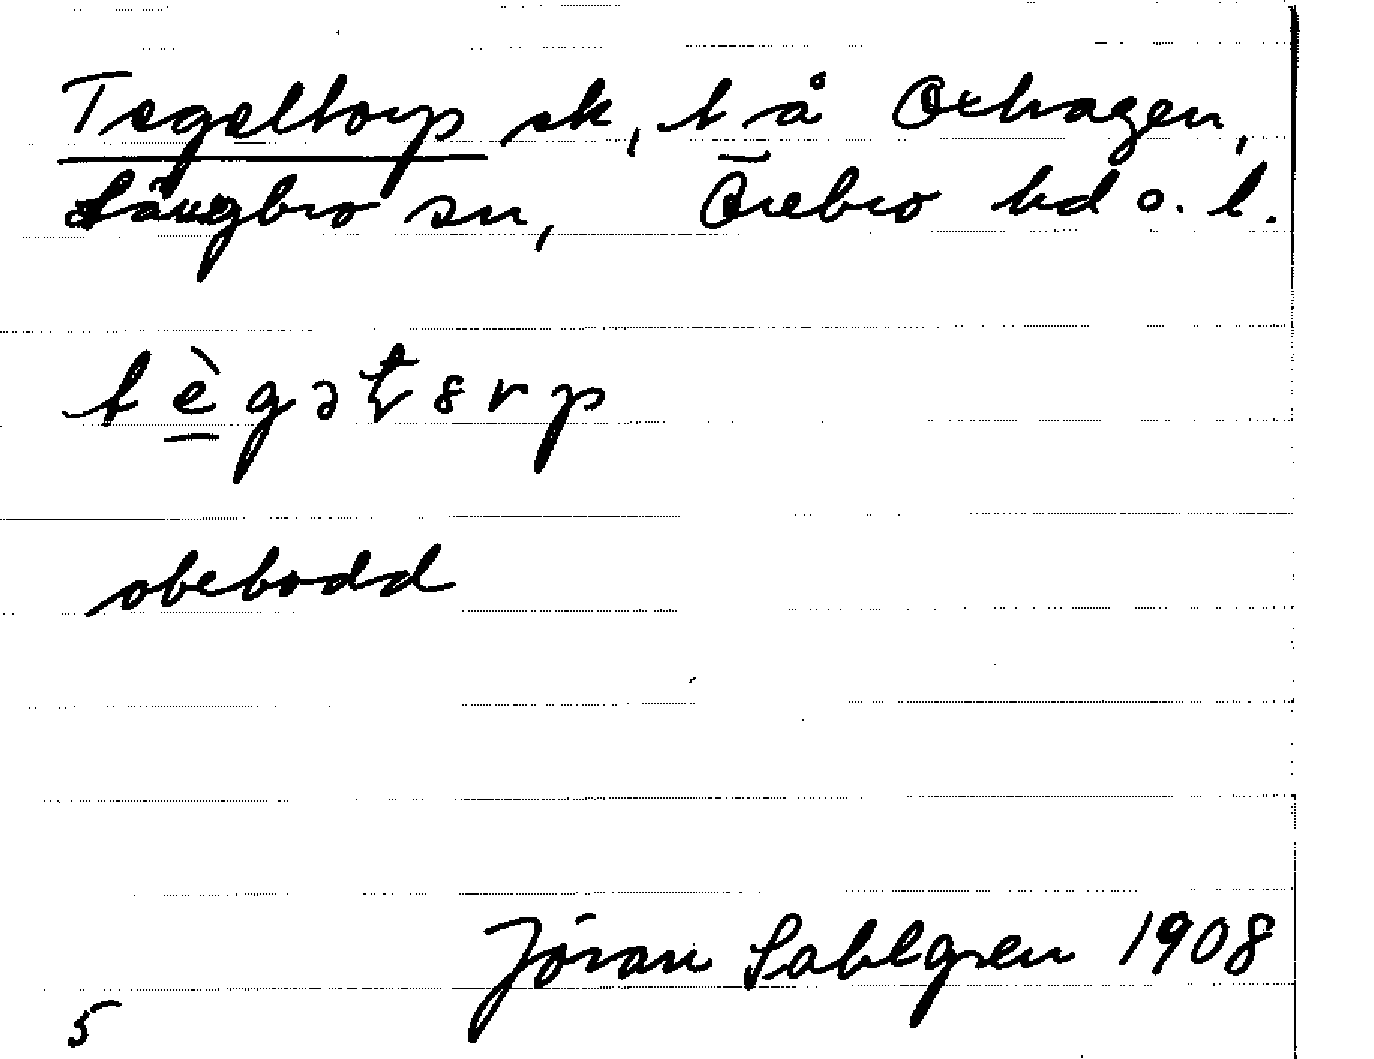 Tegeltorp sk, t å Oxhagen,
Längbro sn, Örebro hd o. l.
obebodd
Jöran Sahlgren 1908
5